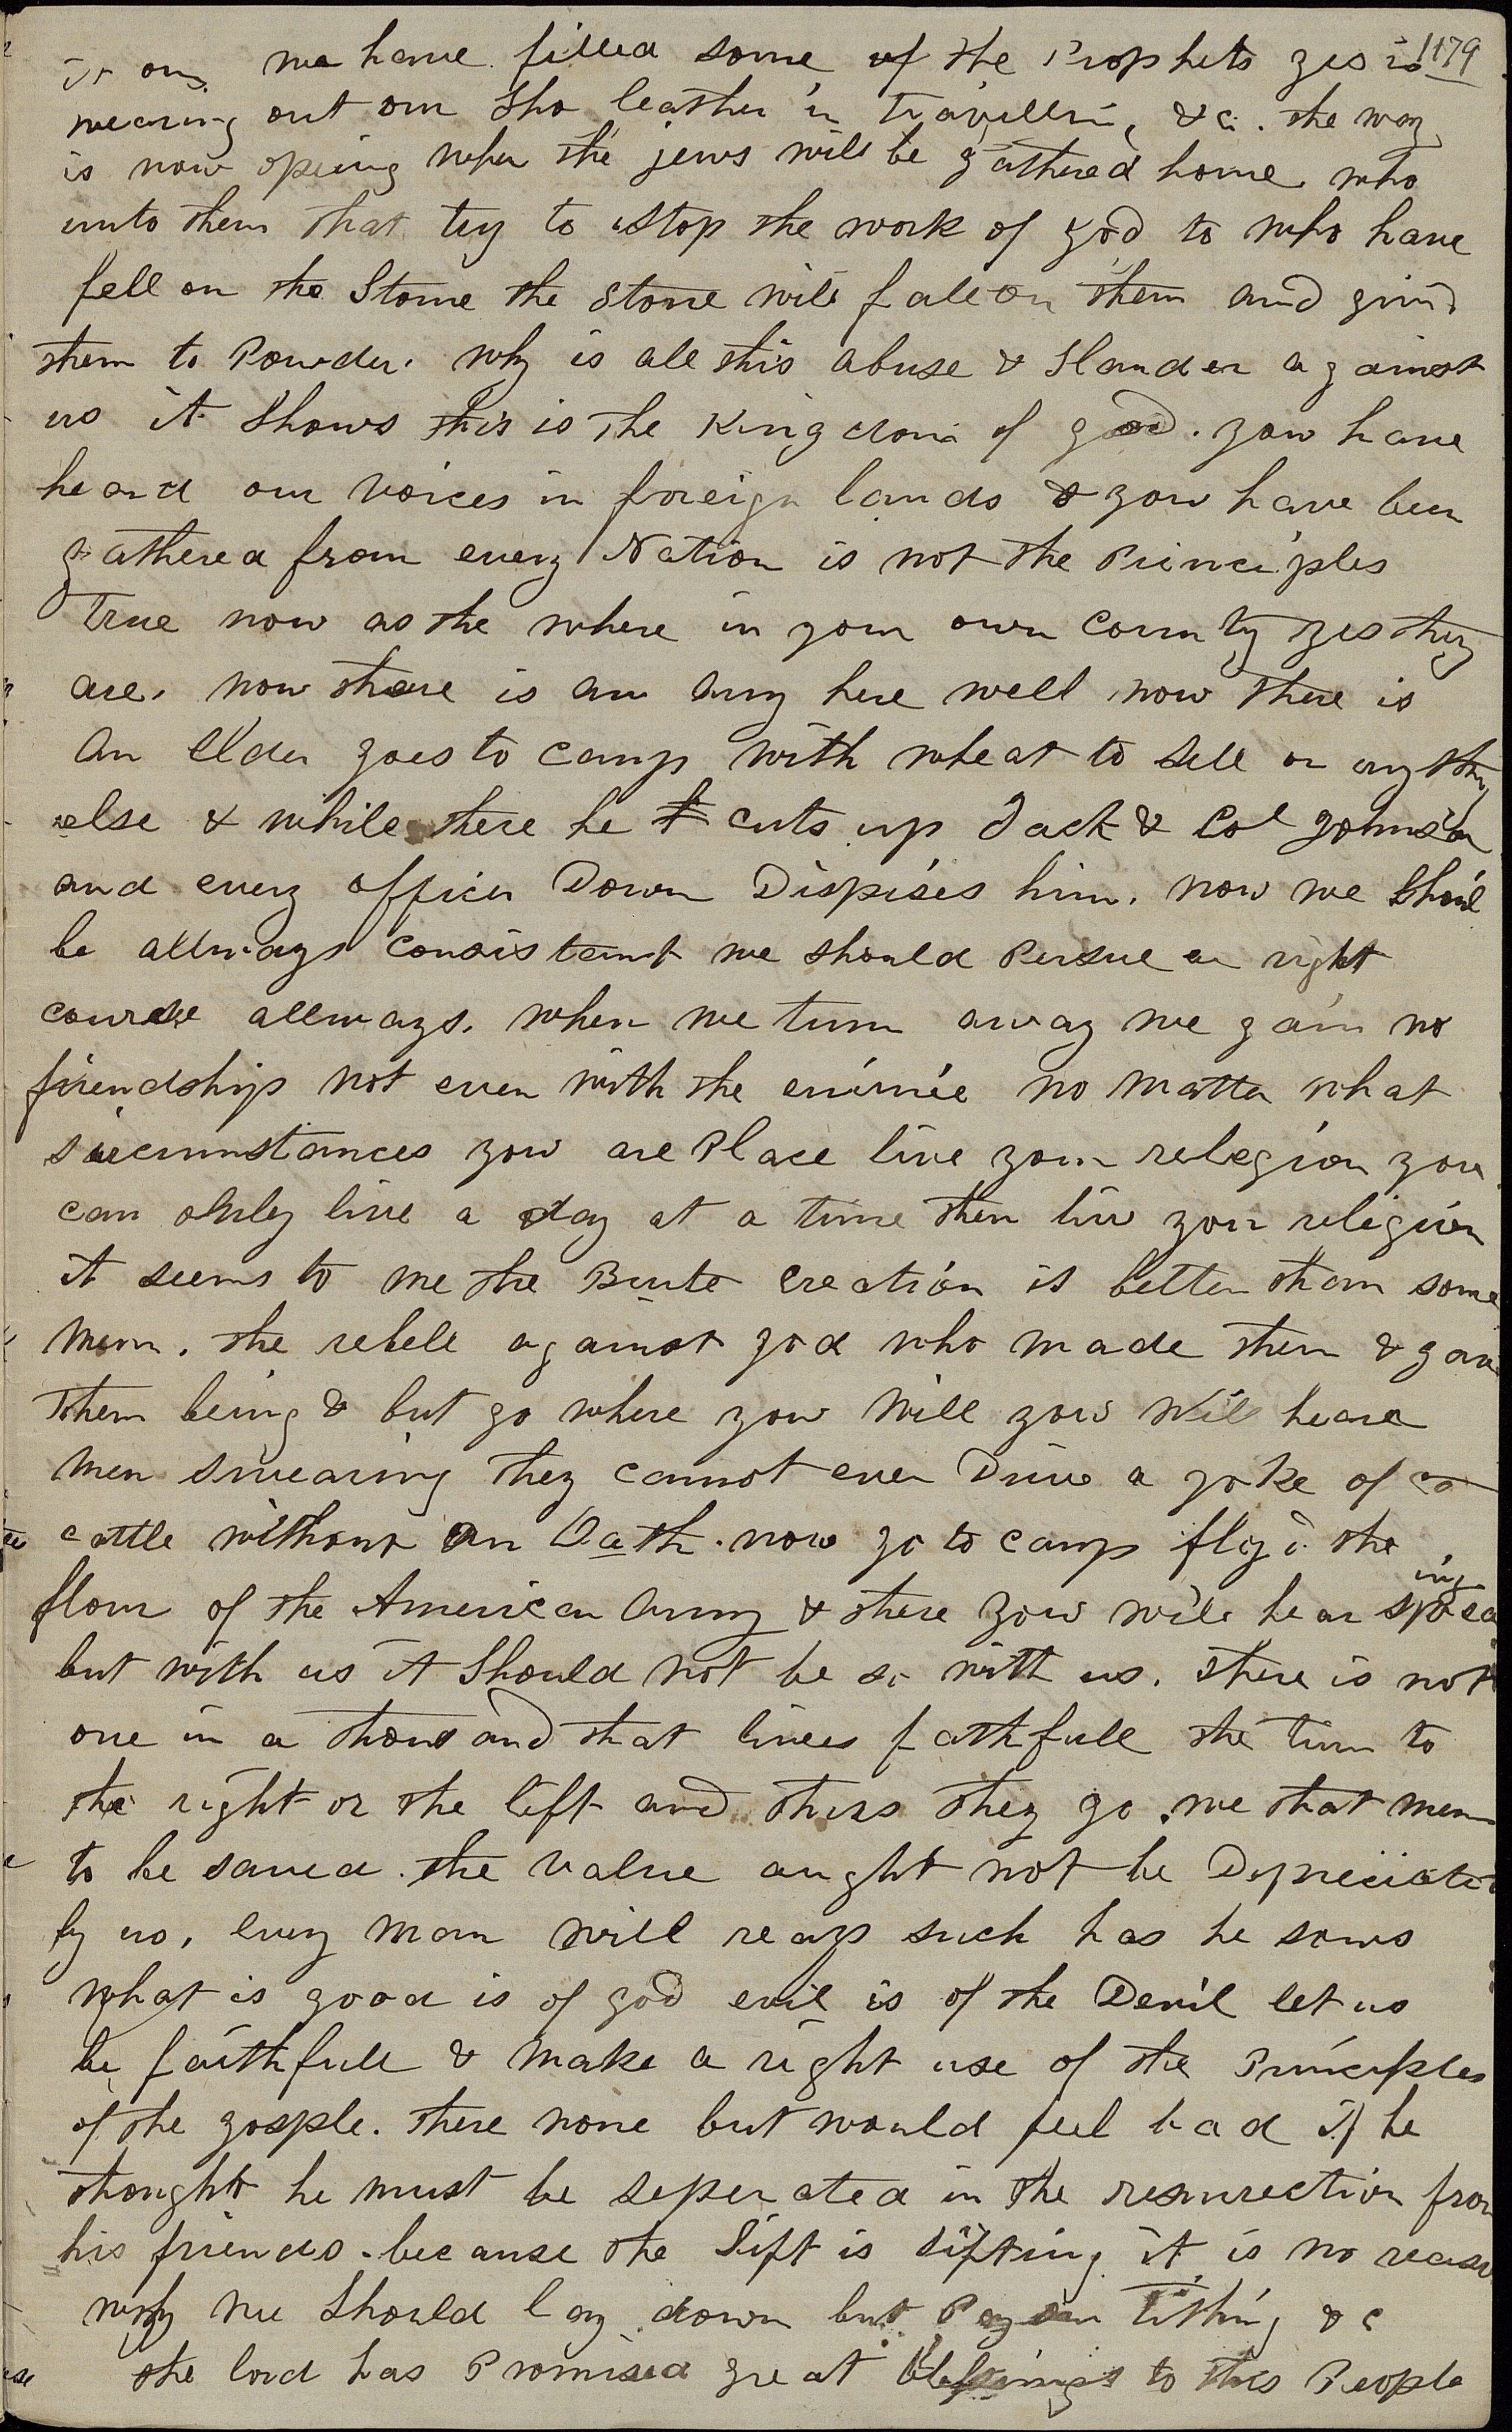 we have filled some of the Prophets yes is 1179
wearing out our Sho leather in travelling &c. the way
is now opeing when the jews will be gathered home. who
unto them that try to stop the work of god to who have
fell on the Stone the stone will fall on them and grind
them to Powder. why is all this abuse & Slander against
us it shows this is the Kingdom of god. you have
heard our voices in foreign lands & you have been
gathered from every Nation is not the Princiyples
true now as the where in your own country yes they
are. now there is an army here well now there is
An Elder goes to camp with wheat to sell or any thing
else & while there he cuts up Jack & Col Johnson
and every officer Down Dispises him. now we should
be allways consistant we should Persue a right
course allways. when we turn away we gain no
friendship not even with the enimie no matter what
sircumstances you are Place live your relegion you
can only live a day at a time then live your religion
it seems to me the Brute creation is better than some
men. the rebell against god who made them & gave
them being & but go where you will you will heare
men swearing they cannot even Drive a yoke of ca
cattle without An Oath. now go to camp floyd the
flour of the American army & there you will hear
but with us it should not be so with us. there is not
one in a thousand that lives fathfull the turn to
the right or the left and thus they go. we that mean
to be saved. the value aught not be Depreciated
by us. every man will reap such has he sows
what is good is of god evil is of the Devil let us
be faithfull & make a right use of the Principles
of the gosple. there none but would feel bad if he
thought he must be seperated in the resurrection from
his friends. because the Sift is sifting it is no reason
why we should lay down but Pay our tithing &c
the lord has Promised great blessings to this People